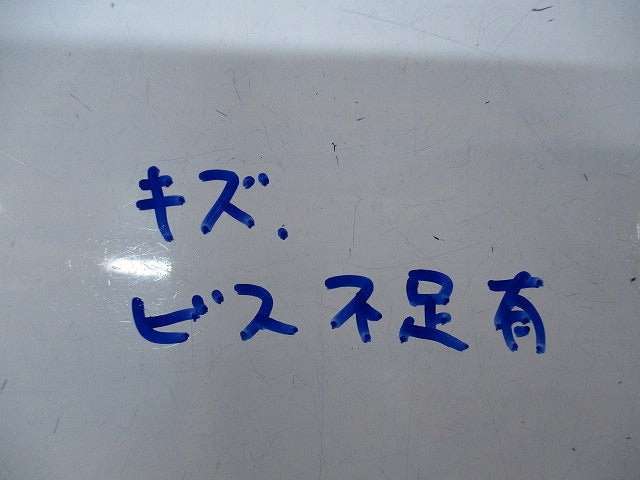 キズ.
ビス不足有